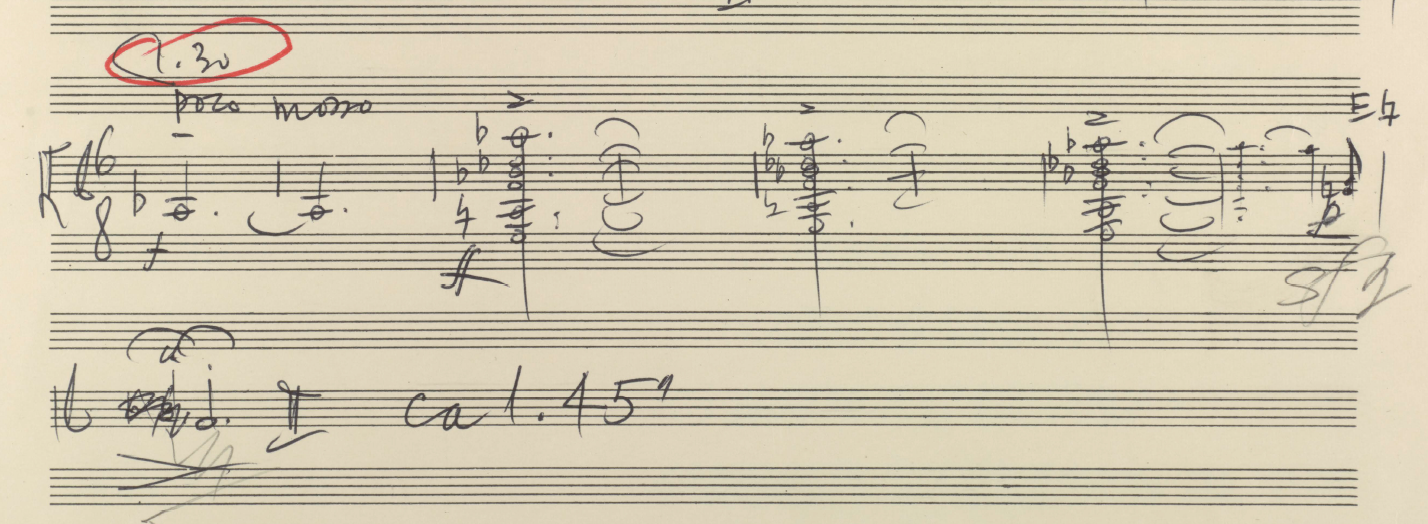 1.30
poco mosso
E♮
6
8
f
ff
sfz
ca 1.45"